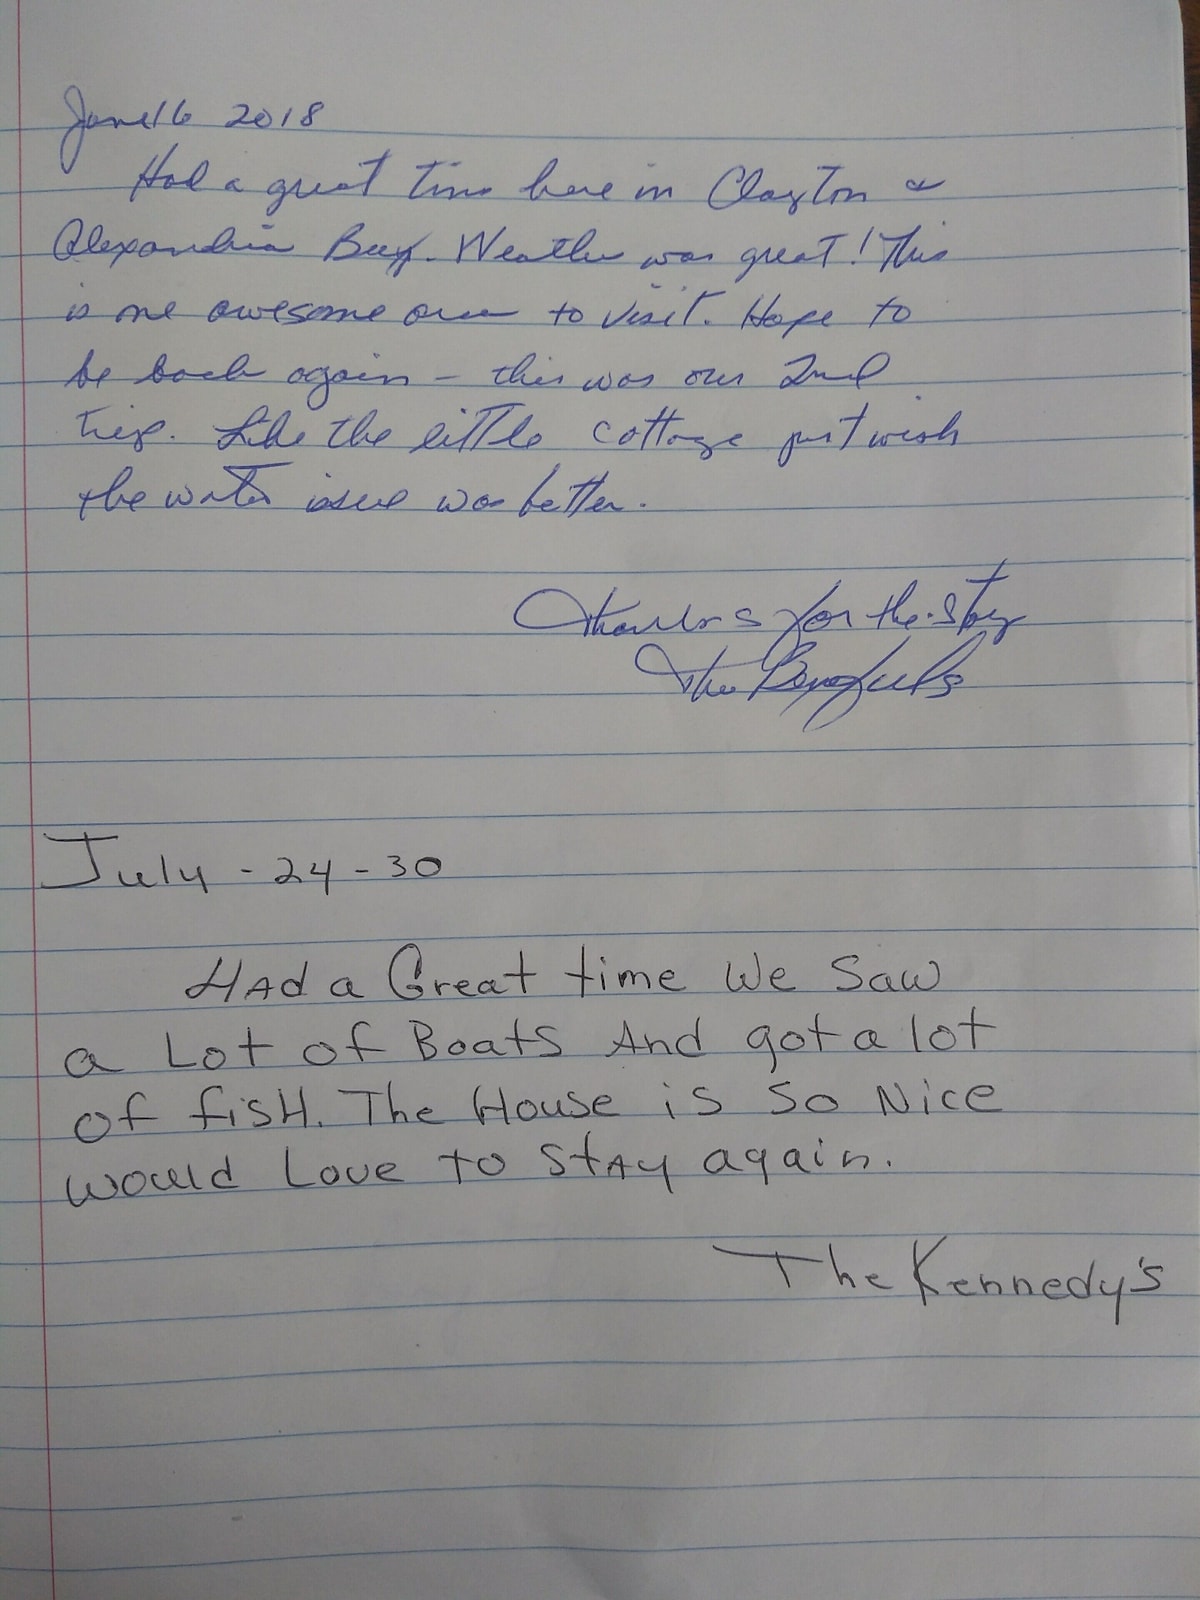 June 16 2018
Had a great time here in Clayton &
Alexandria Bay. Weather was great! This
is one awesome area to visit. Hope to
be back again - this was our 2nd
trip. Like the little cottage just wish
the water issue was better.
Thanks for the stay
The
July - 24 - 30
HAd a Great time We Saw
a Lot of Boats And got a lot
of fisH. The House is so Nice
would Love to StAy again.
The Kennedy's